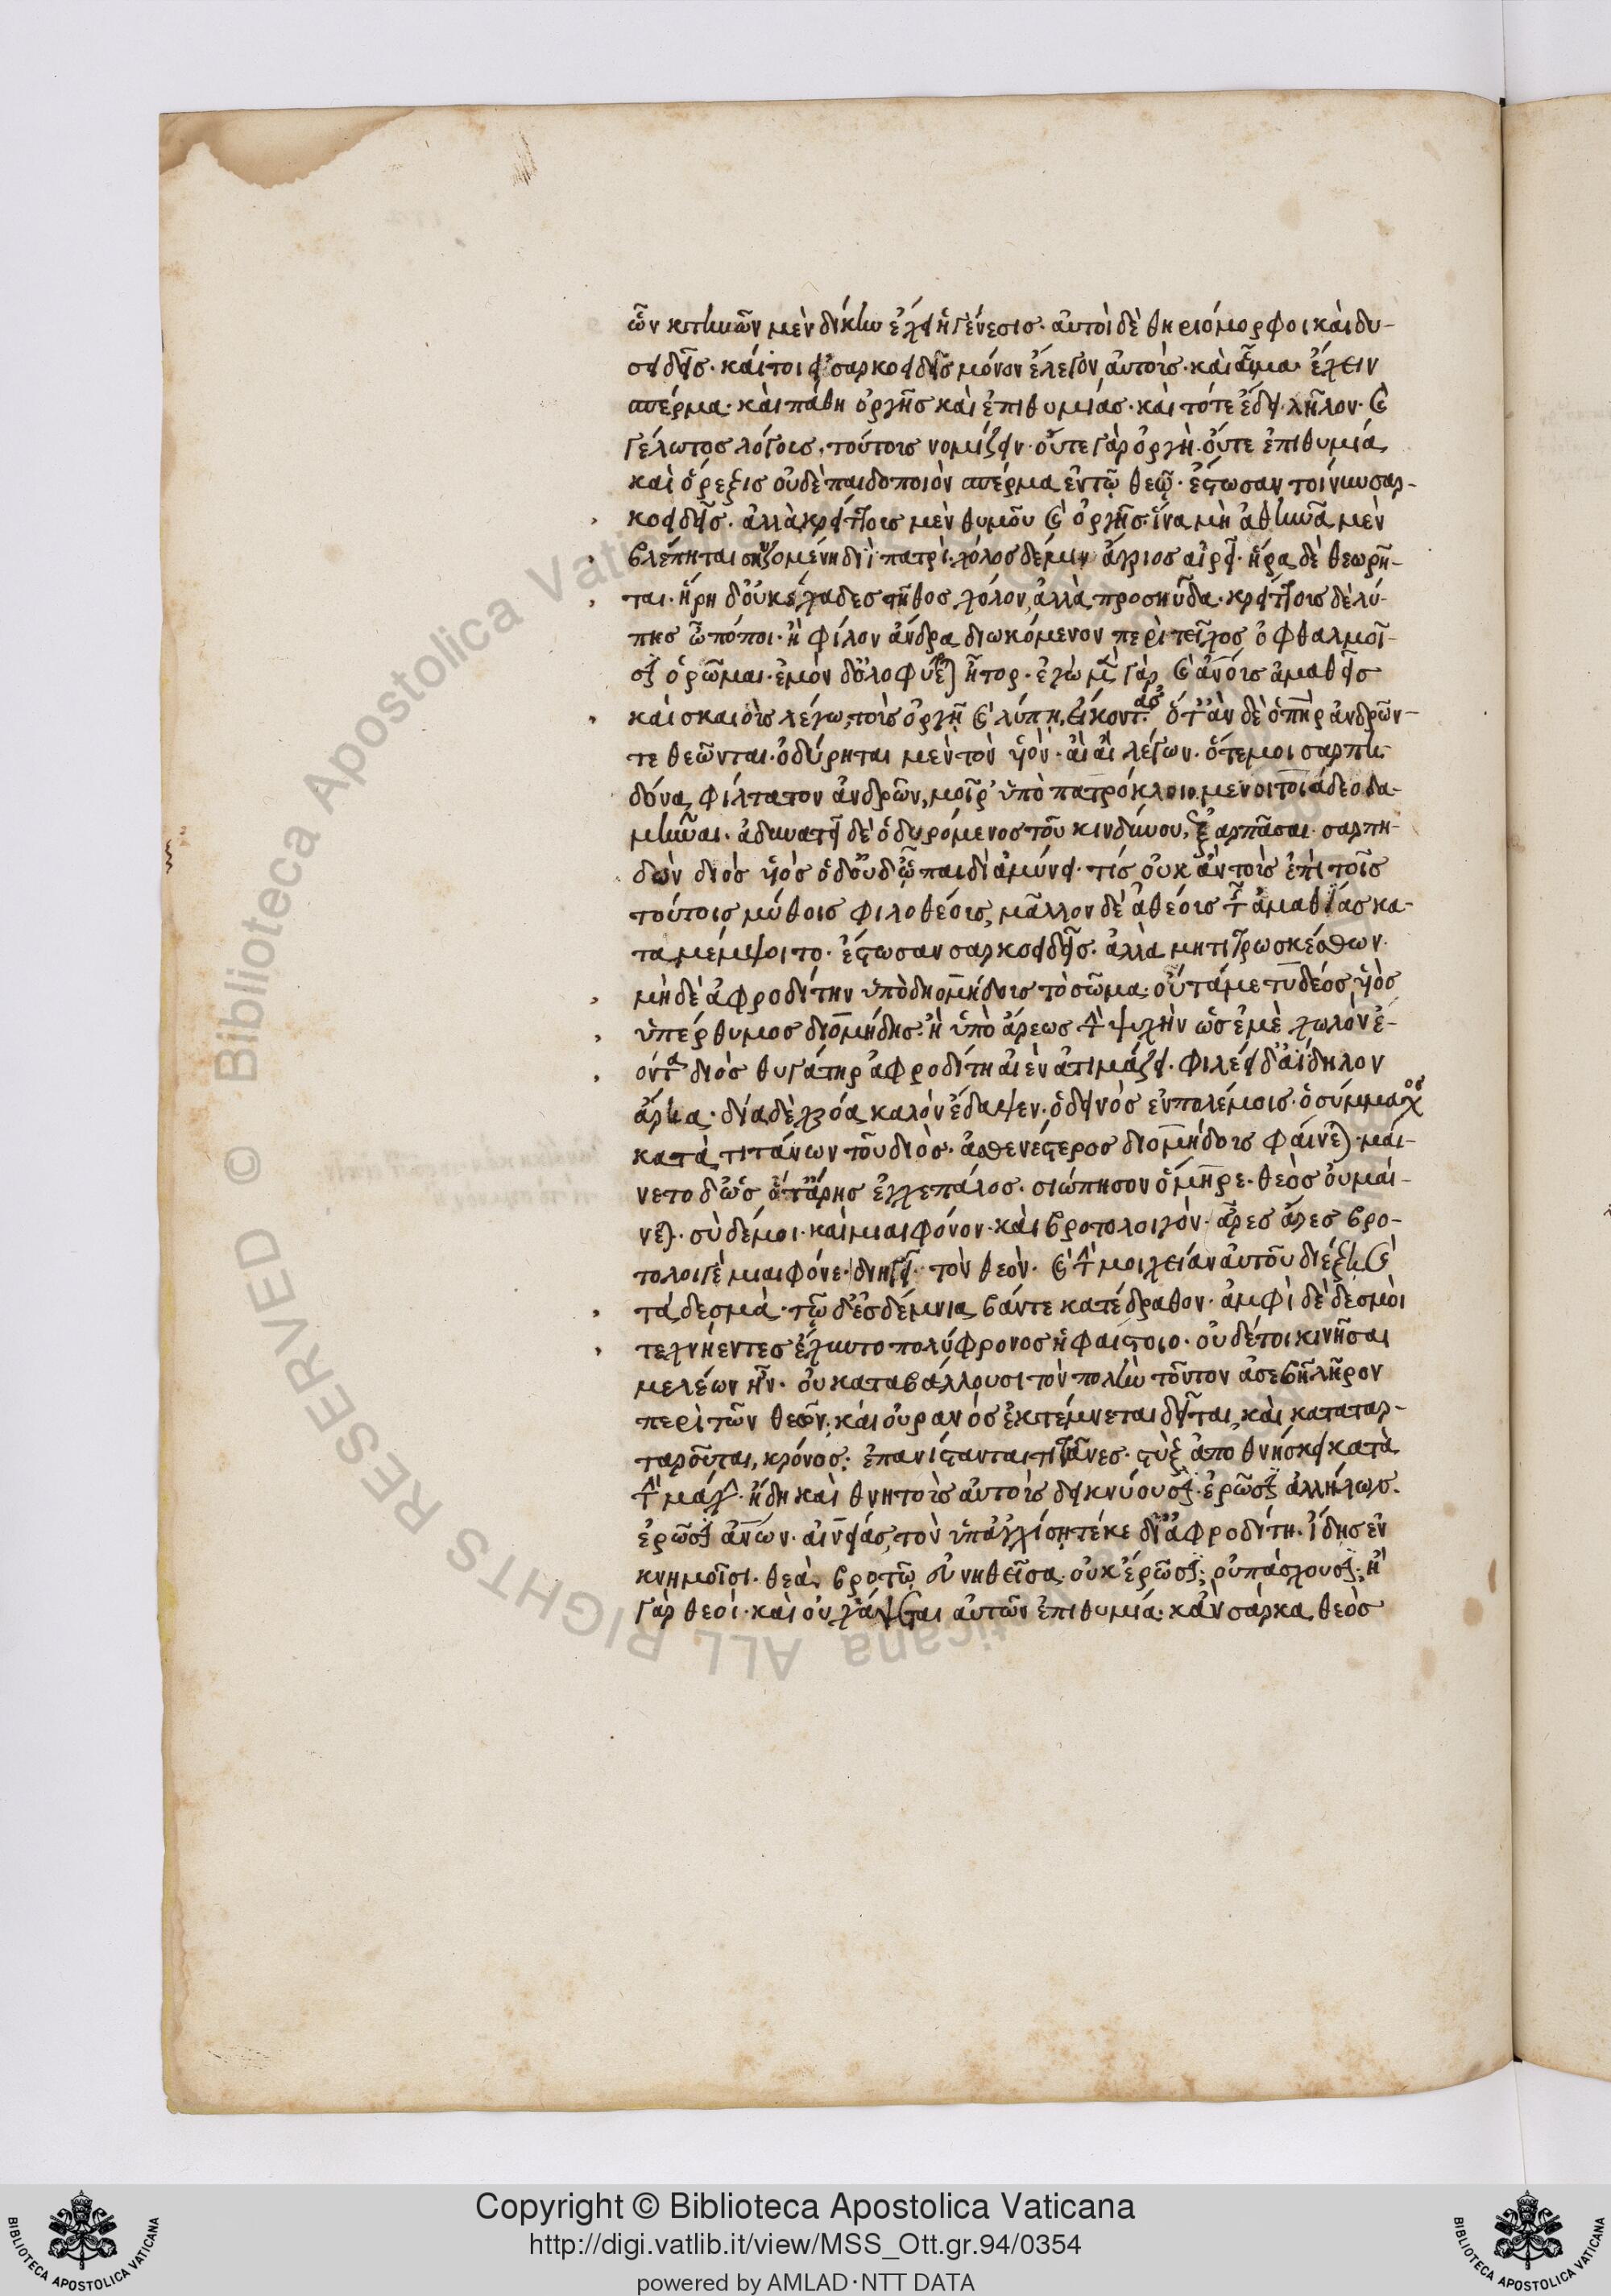 ὧν κτηνῶν μὲν δίκην ἔχει ἡ γένεσις· αὐτοὶ δὲ θηριόμορφοι καὶ δυ-
σειδεῖς· καίτοι εἰ σαρκοειδεῖς μόνον ἔλεγον αὐτοὺς· καὶ αἷμα ἔχειν
σπέρμα· καὶ πάθη ὀργῆς καὶ ἐπιθυμίας· καὶ τότε ἔδει λῆρον· καὶ
γέλωτος λόγους τούτους νομίζειν· οὔτε γὰρ ὀργὴ· οὔτε ἐπιθυμία
καὶ ὄρεξις οὐδὲ παιδοποιὸν σπέρμα ἐν τῷ θεῷ· ἔστωσαν τοίνυν σαρ-
κοειδεῖς· ἀλλὰ κρείττους μὲν θυμοῦ καὶ ὀργῆς· ἵνα μὴ ἀθηνᾶ μὲν
βλέπηται σκυζομένη διὶ πατρί· χόλος δέ μιν ἄγριος αἱρεῖ· ἥρα δὲ θεωρῆ-
ται· ἥρη δ' οὐκ ἔχαδε στῆθος χόλον ἀλλὰ προσηύδα· κρείττους δὲ λύ-
πης ὦ πόποι· ἢ φίλον ἄνδρα διωκόμενον περὶ τεῖχος ὀφθαλμοῖ-
σιν ὁρῶμαι· ἐμὸν δ' ὀλοφύρεται ἦτορ· ἐγὼ μὲν γὰρ καὶ ἀνους ἀμαθεῖς
καὶ σκαιοὺς λέγω, τοὺς ὀργῇ καὶ λύπῃ εἴκοντας· ὅταν δὲ ὁ πηρ ἀνδρῶν
τε θεῶν ται· ὀδύρηται μὲν τὸν υἱόν· αἲ αἲ λέγων· ὅτε μοι σαρπη
δόνα φίλτατον ἀνδρῶν, μοῖρ' ὑπὸ πατρόκλοιο μενοιτοιάδεο δα-
μῆναι· ἀδυνατεῖ δὲ ὀδυρόμενος τοῦ κινδύνου, ἐξαρπᾶσαι· σαρπη-
δὼν διὸς υἱὸς ὁ δ' οὐδ' ᾧ παιδὶ ἀμύνει· τίς οὐκ ἂν τοὺς ἐπὶ τοῖς
τούτοις μύθοις φιλοθέους, μᾶλλον δὲ ἀθέους τῆς ἀμαθίας κα-
ταμέμψοιτο· ἔστωσαν σαρκοειδεῖς· ἀλλὰ μὴ τιτρωσκέσθων·
μὴ δὲ ἀφροδίτην ὑπὸ διομήδους τὸ σῶμα· οὖτά με τυδέος υἱὸς
ὑπέρθυμος διομήδης· ἢ ὑπὸ ἄρεως τὴν ψυχὴν ὡς ἐμὲ χωλὸν ἐ-
όντα διὸς θυγάτηρ ἀφροδίτη αἰὲν ἀτιμάζει· φιλέει δ' ἀίδηλον
ἄρηα· διὰ δὲ χρόα καλὸν ἔδαψεν· ὁ δεινὸς ἐν πολέμοις· ὁ σύμμαχος
κατὰ τιτάνων τοῦ διὸς· ἀσθενέστερος διομήδους φαίνεται· μαί-
νετο δ' ὡς ὅτ' ἄρης ἐγχεσπάλος· σιώπησον ὅμηρε· θεὸς οὐ μαί-
νεται· σὺ δέ μοι· καὶ μιαιφόνον· καὶ βροτολοιγὸν· ἆρες ἄρες βρο-
τολοιγὲ μιαιφόνε· διηγῇ τὸν θεὸν· καὶ τὴν μοιχείαν αὐτοῦ διέξει καὶ
τὰ δεσμά· τὼ δ' ἐς δέμνια βάντε κατέδραθον· ἀμφὶ δὲ δεσμοὶ
τεχνήεντες ἔχυντο πολύφρονος ἡφαίστοιο· οὐδέ τοι κινῆσαι
μελέων ἦν· οὐ καταβάλλουσι τὸν πολὺν τοῦτον ἀσεβῆ λῆρον
περὶ τῶν θεῶν· καὶ οὐρανός ἐκτέμνεται δεῖται καὶ καταταρ-
ταροῦται, κρόνος· ἐπανίστανται τιτᾶνες· στὺξ ἀποθνήσκει κατὰ
τὴν μάχην· ἤδη καὶ θνητοὺς αὐτοὺς δεικνύουσιν· ἐρῶσιν ἀλλήλων·
ἐρῶσιν ἀνων· αἰνείας, τὸν ὑπ' ἀγχίσῃ τέκε δῖ' ἀφροδίτη· ἴδης ἐν
κνημοῖσι· θεὰ βροτῷ εὐνηθεῖσα· οὐκ ἐρῶσιν· οὐ πάσχουσιν· ἢ
γὰρ θεοὶ· καὶ οὐχ ἅψεται αὐτῶν ἐπιθυμία· κἂν σάρκα θεὸς
© Biblioteca Apostolica Vaticana ALL RIGHTS RESERVED
Copyright © Biblioteca Apostolica Vaticana
http://digi.vatlib.it/view/MSS_Ott.gr.94/0354
powered by AMLAD·NTT DATA
BIBLIOTECA APOSTOLICA VATICANA
BIBLIOTECA APOSTOLICA VATICANA